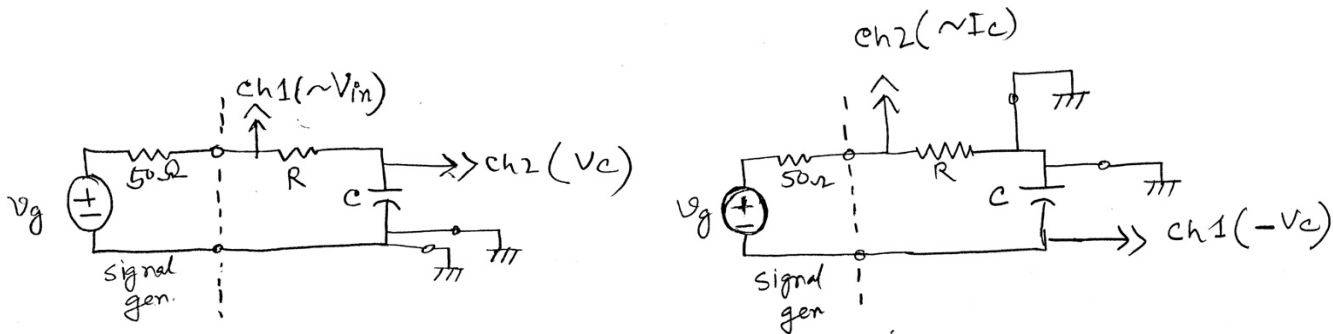 ch1(~Vin)
50Ω
R
C
ch2 (Vc)
Vg
+
-
signal
gen.
ch2(~Ic)
50Ω
R
C
Vg
+
-
ch1(-Vc)
signal
gen